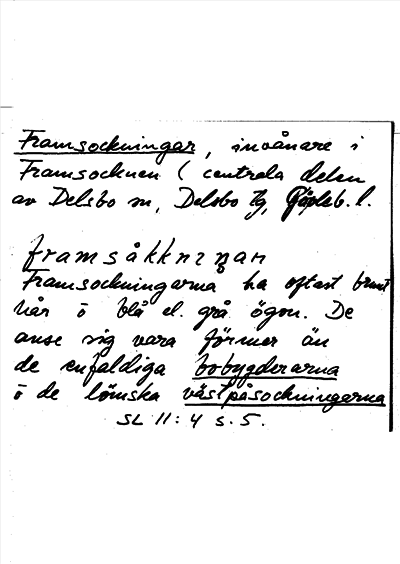 Framsockningar, invånare i
Framsocknen (centrala delen
av Delsbo sn, Delsbo tg, Gävleb. l.
framsåkknıŋan
Framsockningarna ha oftast brunt
hår o blå el. grå ögon. De
anse sig vara förmer än
de enfaldiga bobygderarna
o de lömska västpåsockningarna
SL 11:4 s. 5.